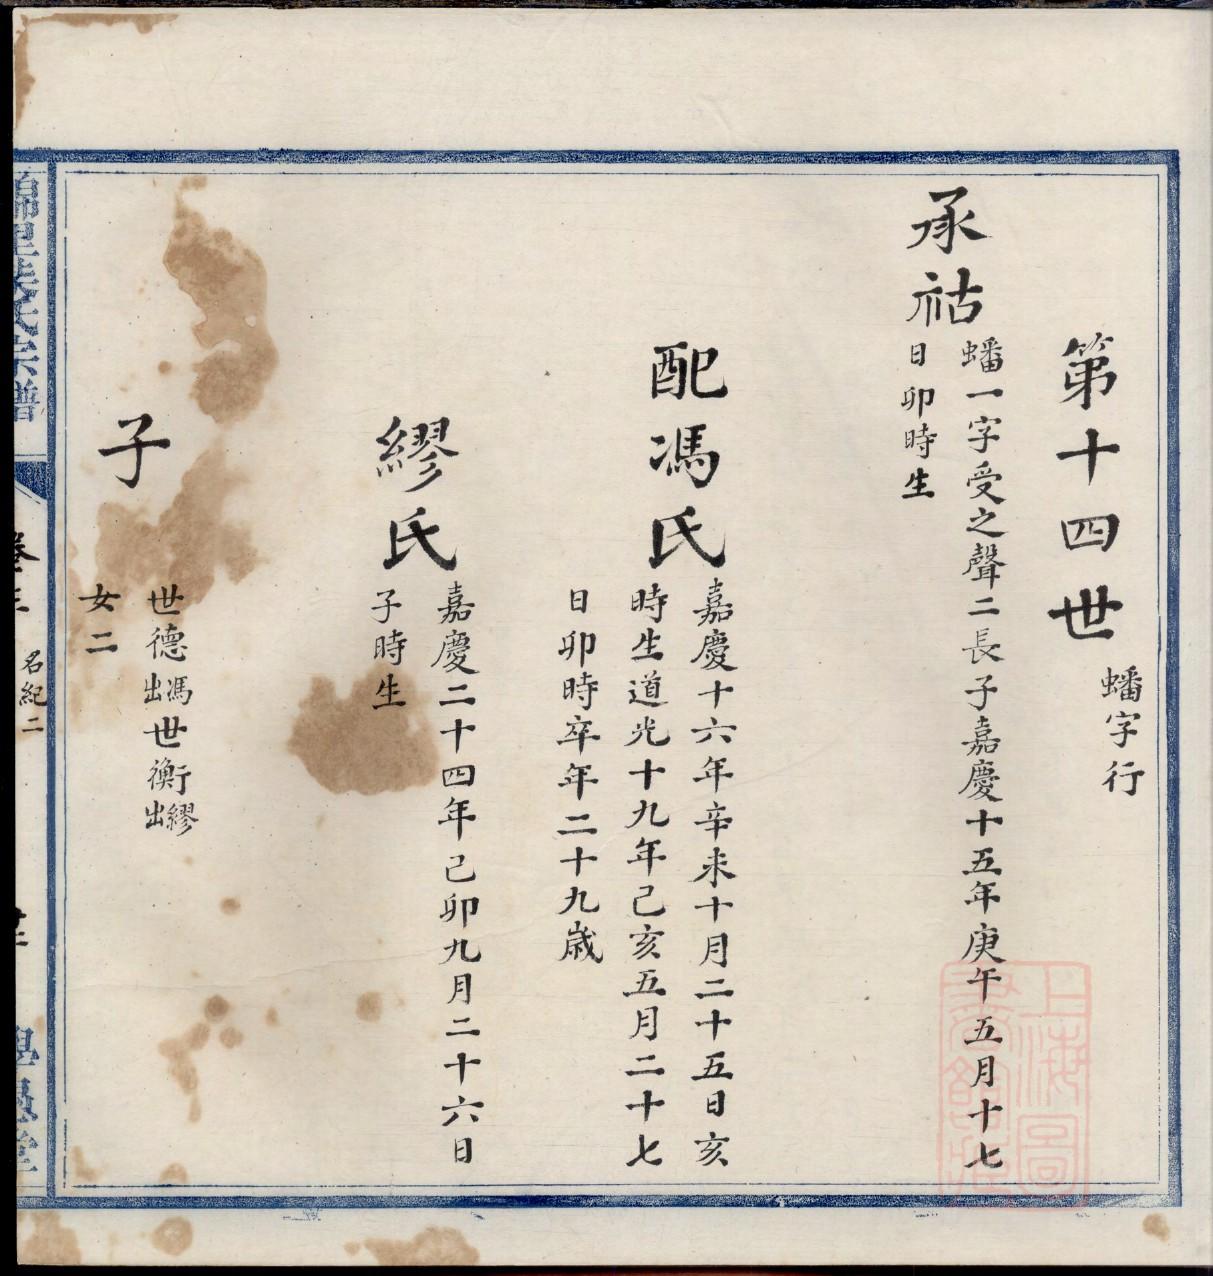 第十四世 蟠字行
承祜 蟠一字受之聲二長子嘉慶十五年庚午五月十七
日卯時生
配馮氏 嘉慶十六年辛未十月二十五日亥
時生道光十九年己亥五月二十七
日卯時卒年二十九歲
繆氏 嘉慶二十四年己卯九月二十六日
子時生
子 世德馮出世衡繆出
女二
名紀二
氏宗譜
上海圖書館藏